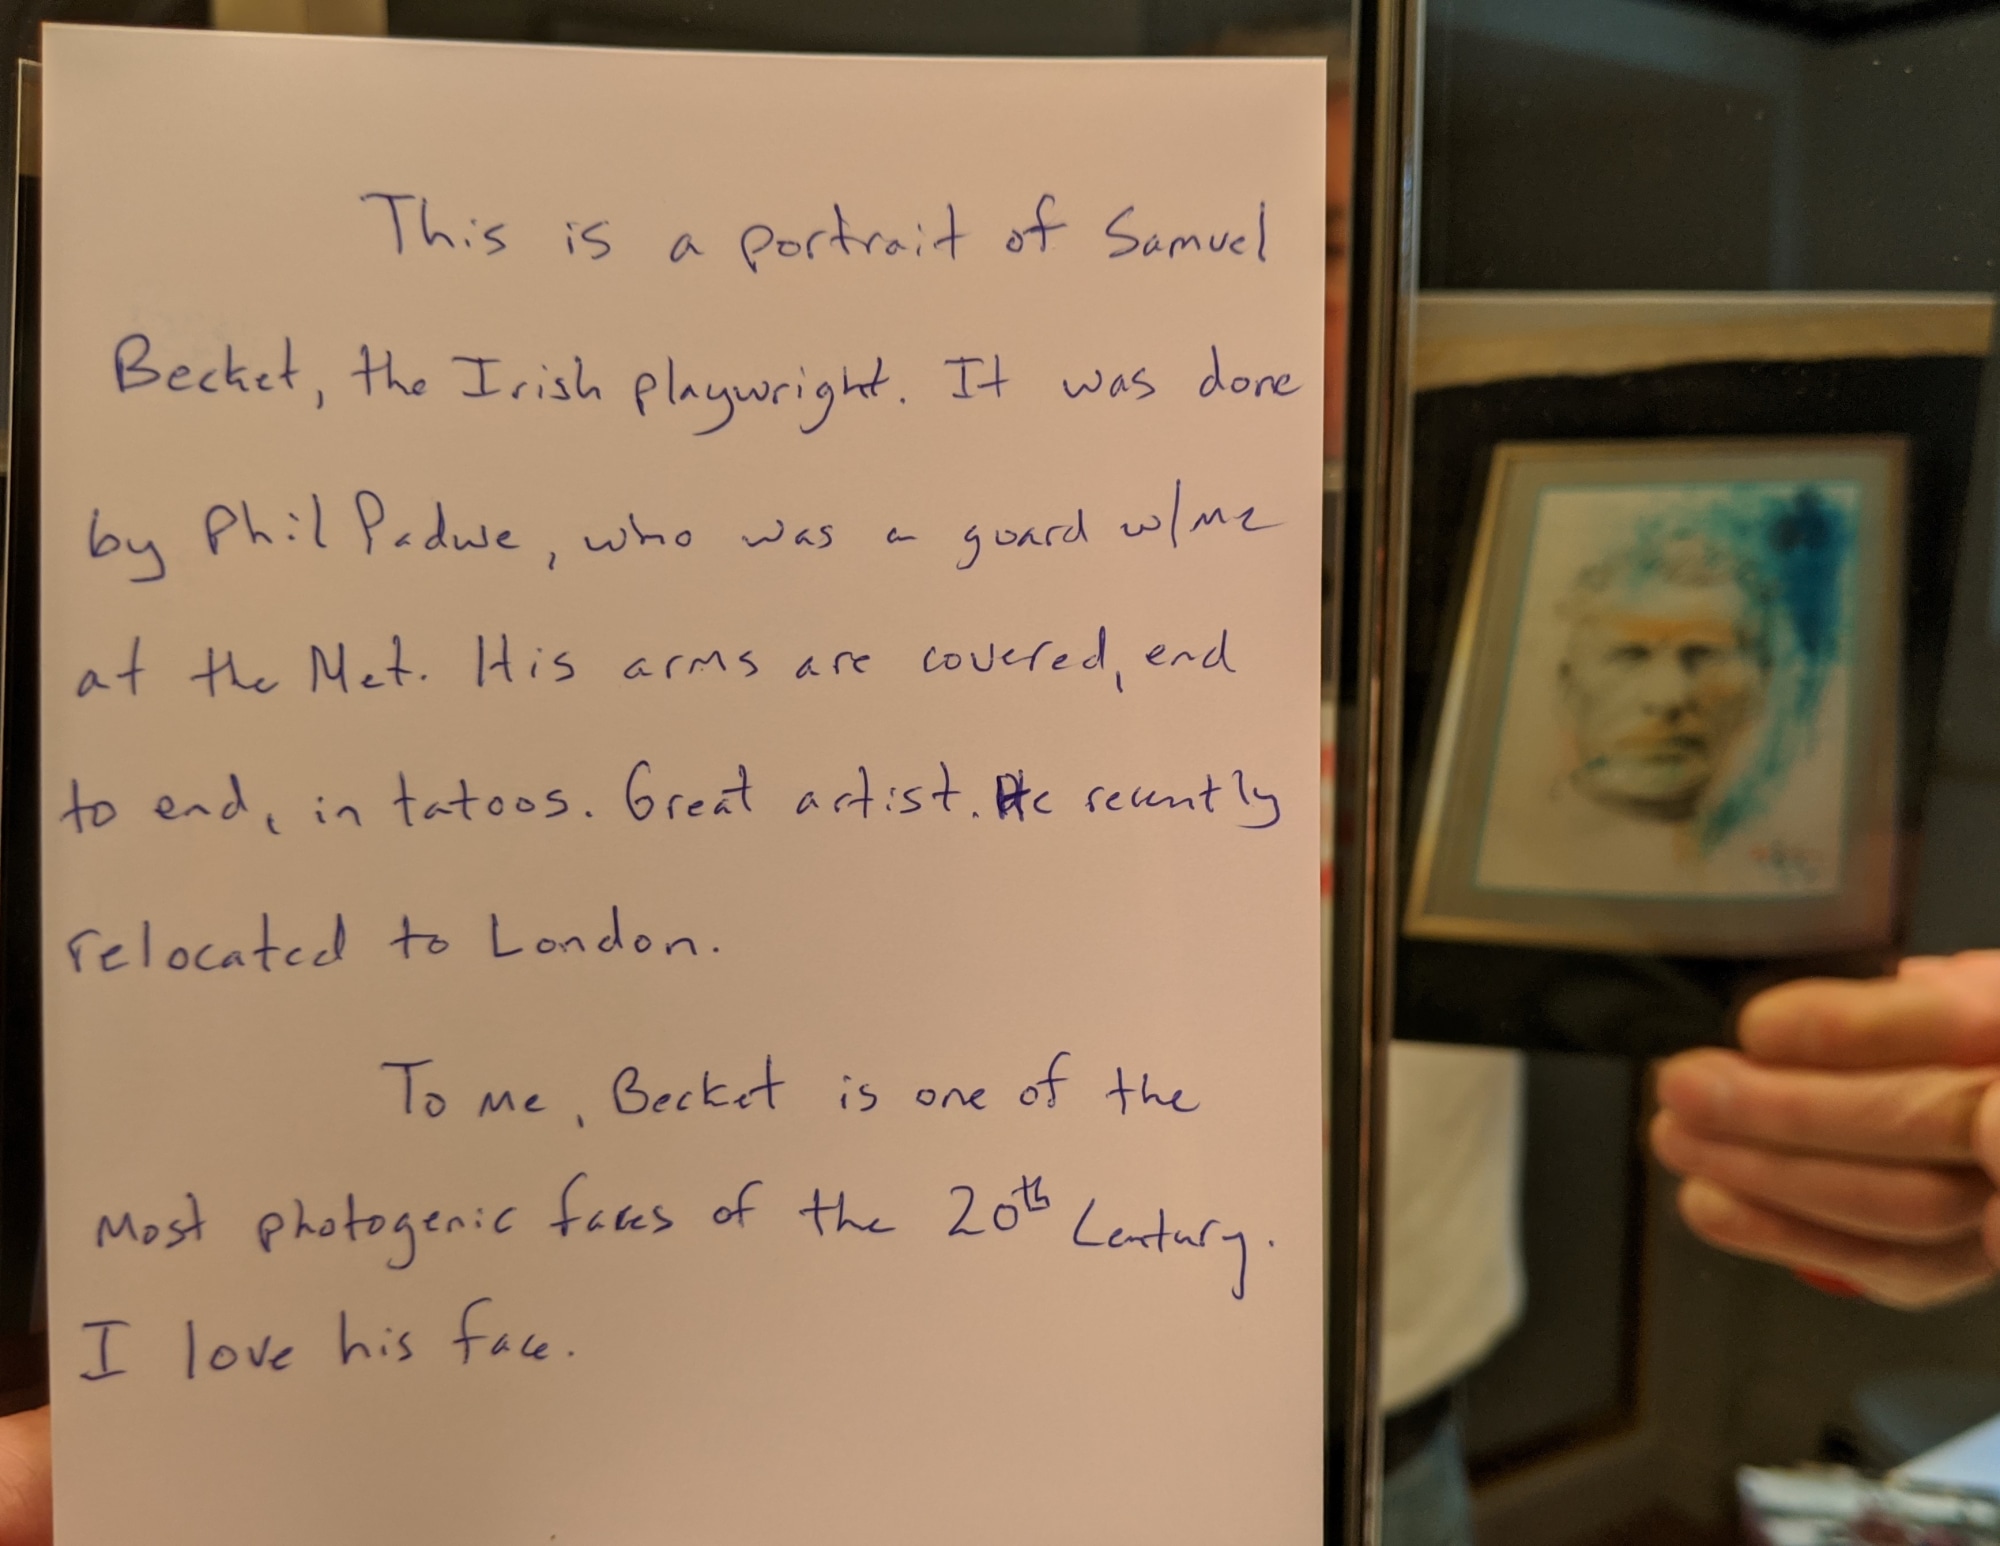 This is a portrait of Samuel
Becket, the Irish playwright. It was done
by Phil Padwe, who was a guard w/me
at the Met. His arms are covered, end
to end, in tatoos. Great artist. He recently
relocated to London.
To me, Becket is one of the
most photogenic faces of the 20th Century.
I love his face.